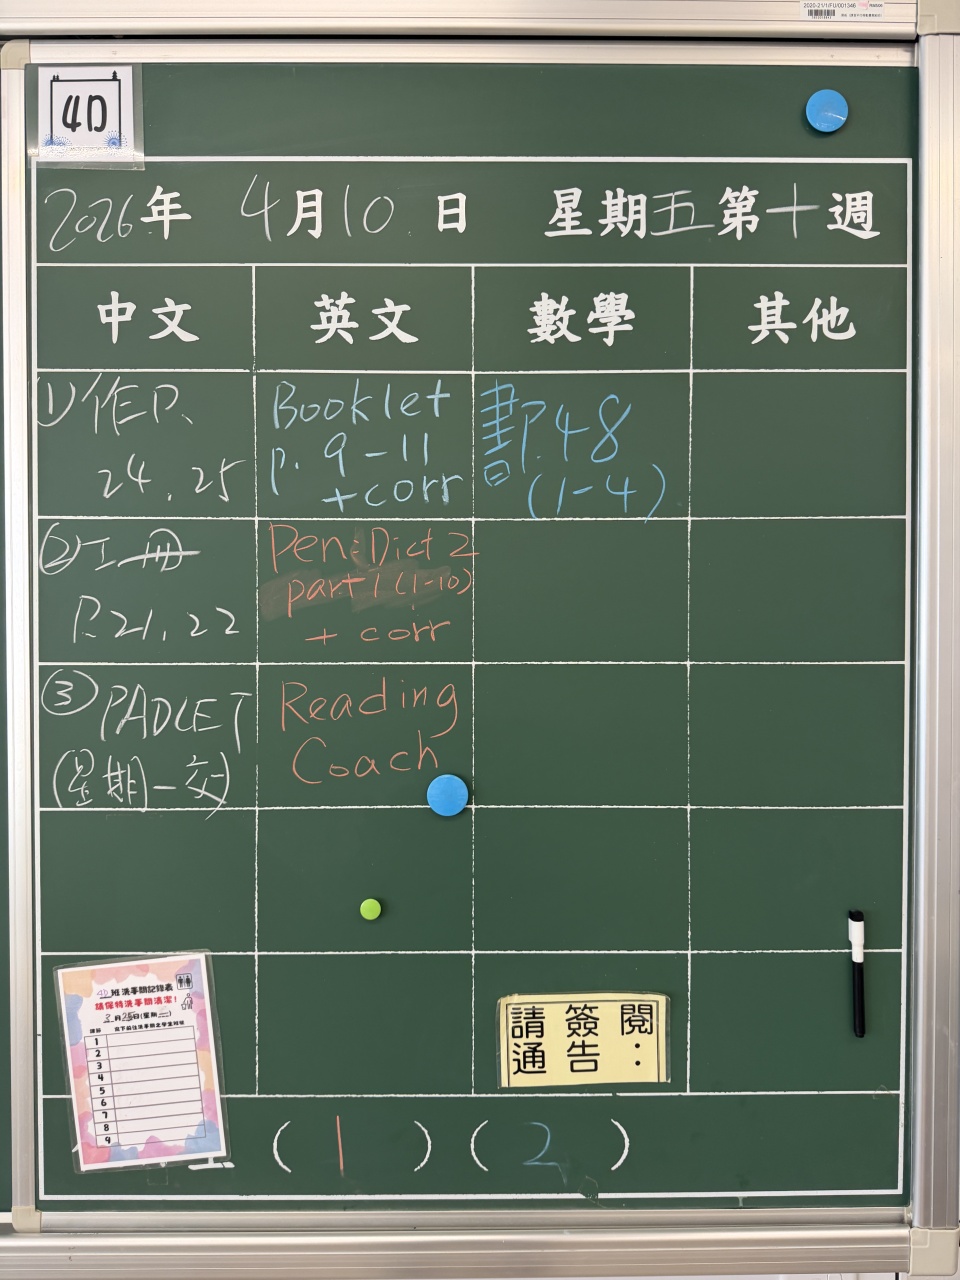 2020-21/1/FU/001346
4D
2026年 4月10日 星期五第十週
中文 英文 數學 其他
(1)作P.
24, 25
Booklet
p. 9-11
+corr
書P.48
(1-4)
②工冊
P.21, 22
Pen: Dict 2
part 1 (1-10)
+ corr
③PADLET
(星期一交)
Reading
Coach
4D班洗手間記錄表
請保持洗手間清潔!
3月25日(星期二)
1
2
3
4
5
6
7
8
9
請簽閱
通告:
(1) (2)